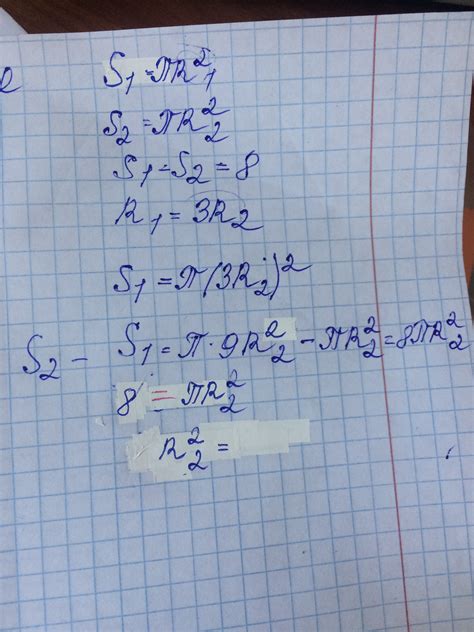 S₁ = πR₁²
S₂ = πR₂²
S₁ - S₂ = 8
R₁ = 3R₂
S₁ = π(3R₂)²
S₂ - S₁ = π · 9R₂² - πR₂² = 8πR₂²
8 = πR₂²
R₂² =